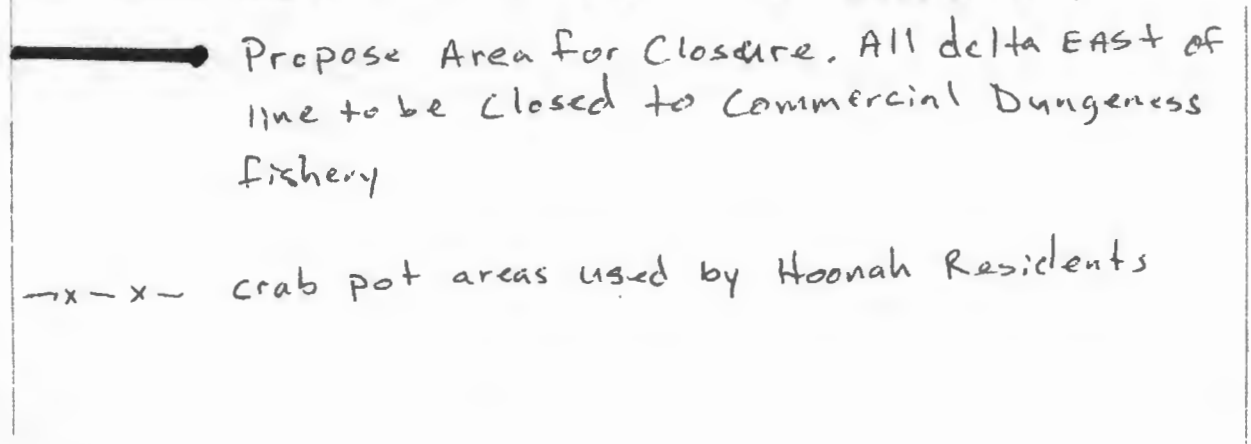 Propose Area for Closure. All delta EAST of
line to be closed to Commercial Dungeness
fishery
—x–x– crab pot areas used by Hoonah Residents